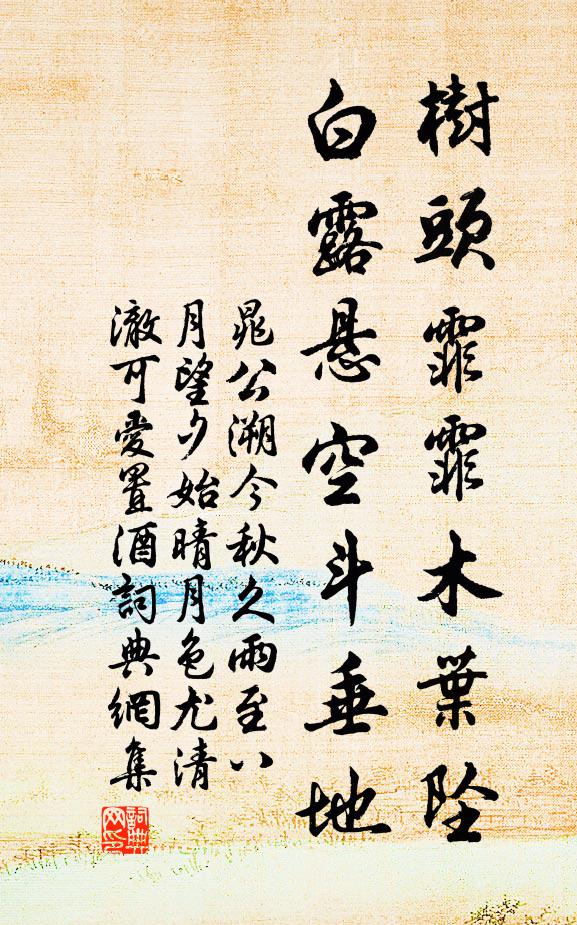 樹頭霏霏木葉墜
白露悬空斗垂地
晁公溯今秋久雨至八
月望夕始晴月色尤清
澈可愛置酒詞典網集
詞典网印